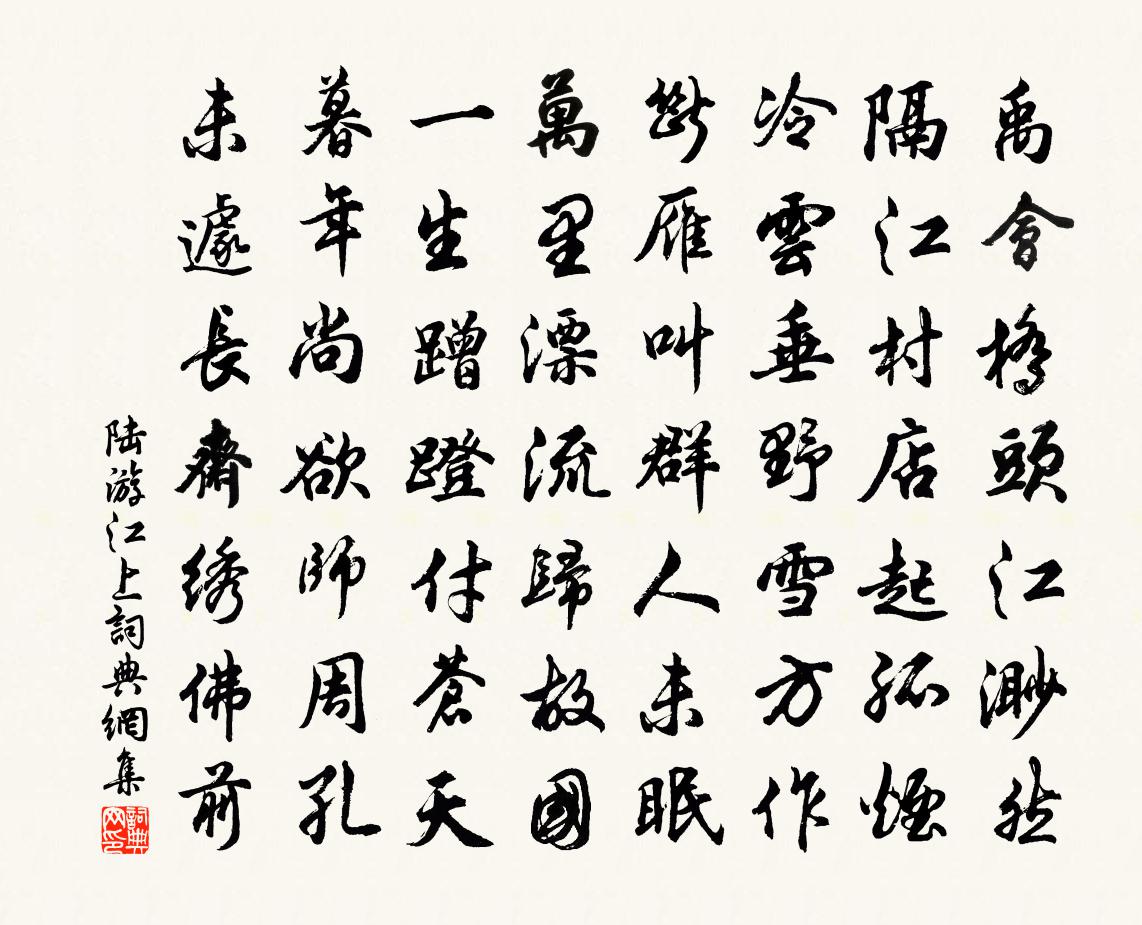 禹會橋頭江渺然
隔江村店起孤煙
冷雲垂野雪方作
斷雁叫群人未眠
萬里漂流歸故國
一生蹭蹬付蒼天
暮年尚欲師周孔
未遽長齋綉佛前
陸游江上詞典網集
詞典网印